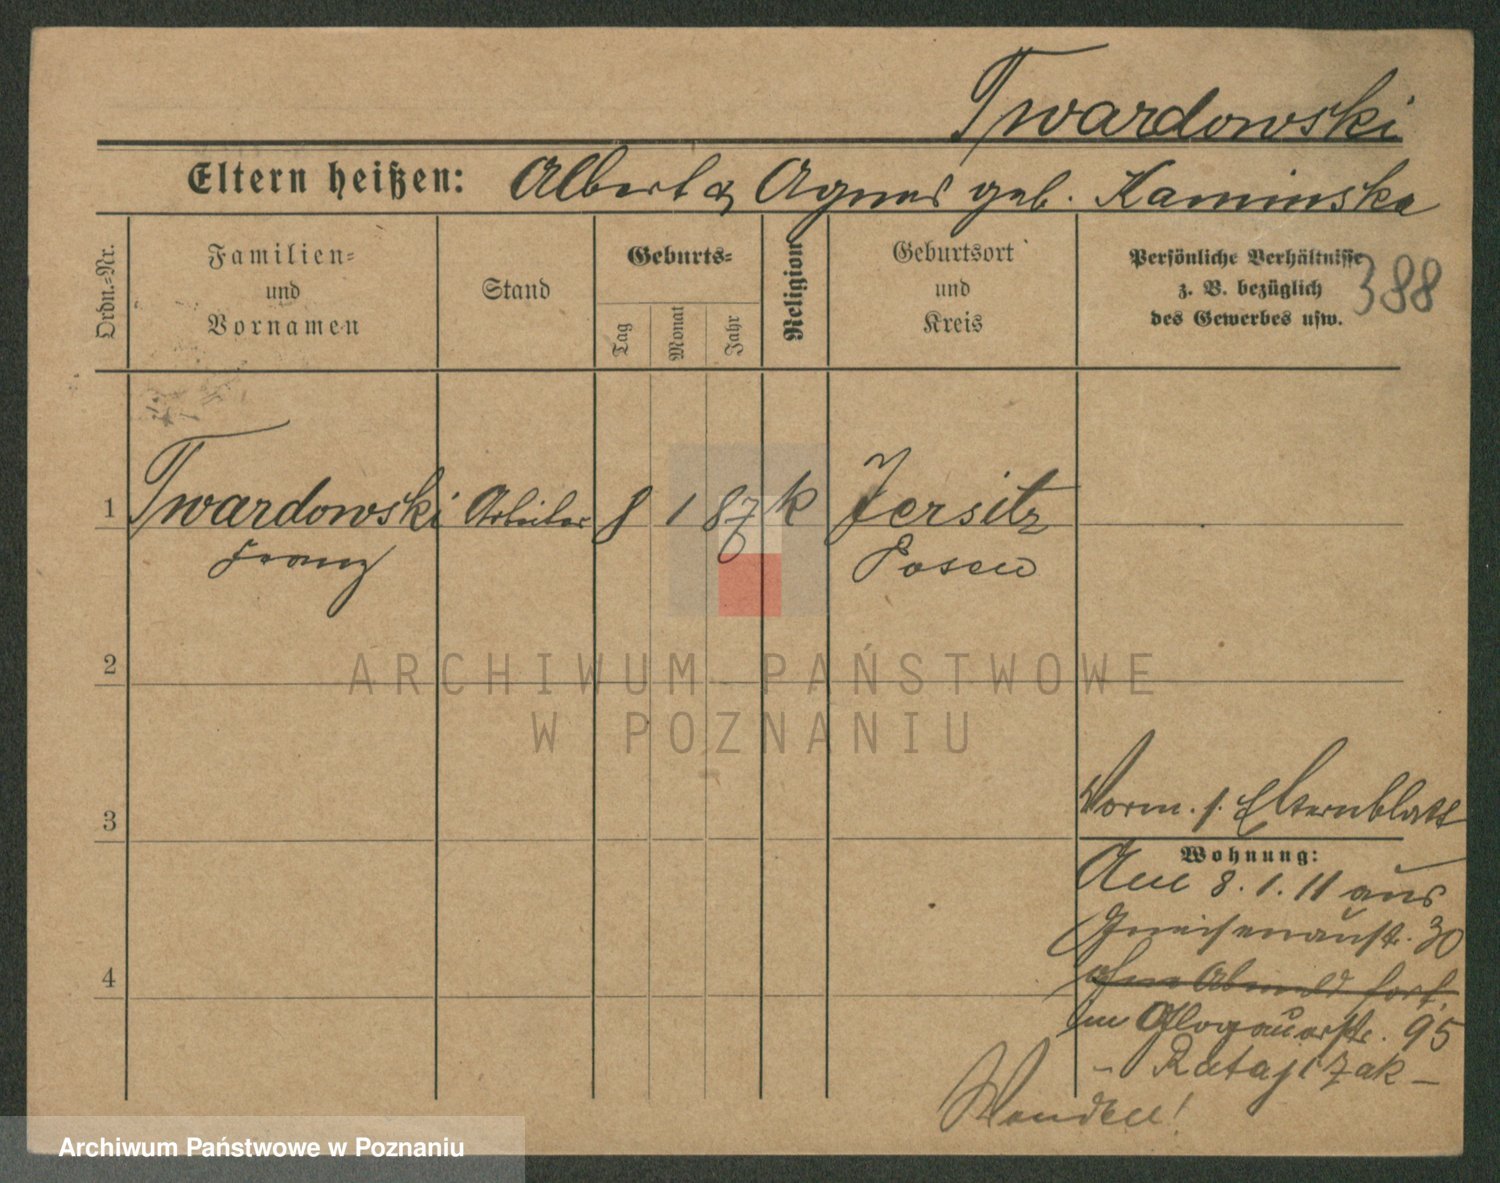 Twardowski
Eltern heißen: Albert & Agnes geb. Kaminska
Ordn.-Nr.
Familien-
und
Vornamen
Stand
Geburts-
Tag
Monat
Jahr
Religion
Geburtsort
und
Kreis
Persönliche Verhältnisse
z. B. bezüglich
des Gewerbes usw.
388
1 Twardowski Arbeiter 8 1 87 k Jersitz
Franz Posen
2
3
4
Vorm. s. Elternblatt
Wohnung:
Am 8.1.11 aus
Gneisenaustr. 30
ohne Abmeld fort.
Glogauerstr. 95
- Ratajczak -
Wenden!
ARCHIWUM PAŃSTWOWE
W POZNANIU
Archiwum Państwowe w Poznaniu